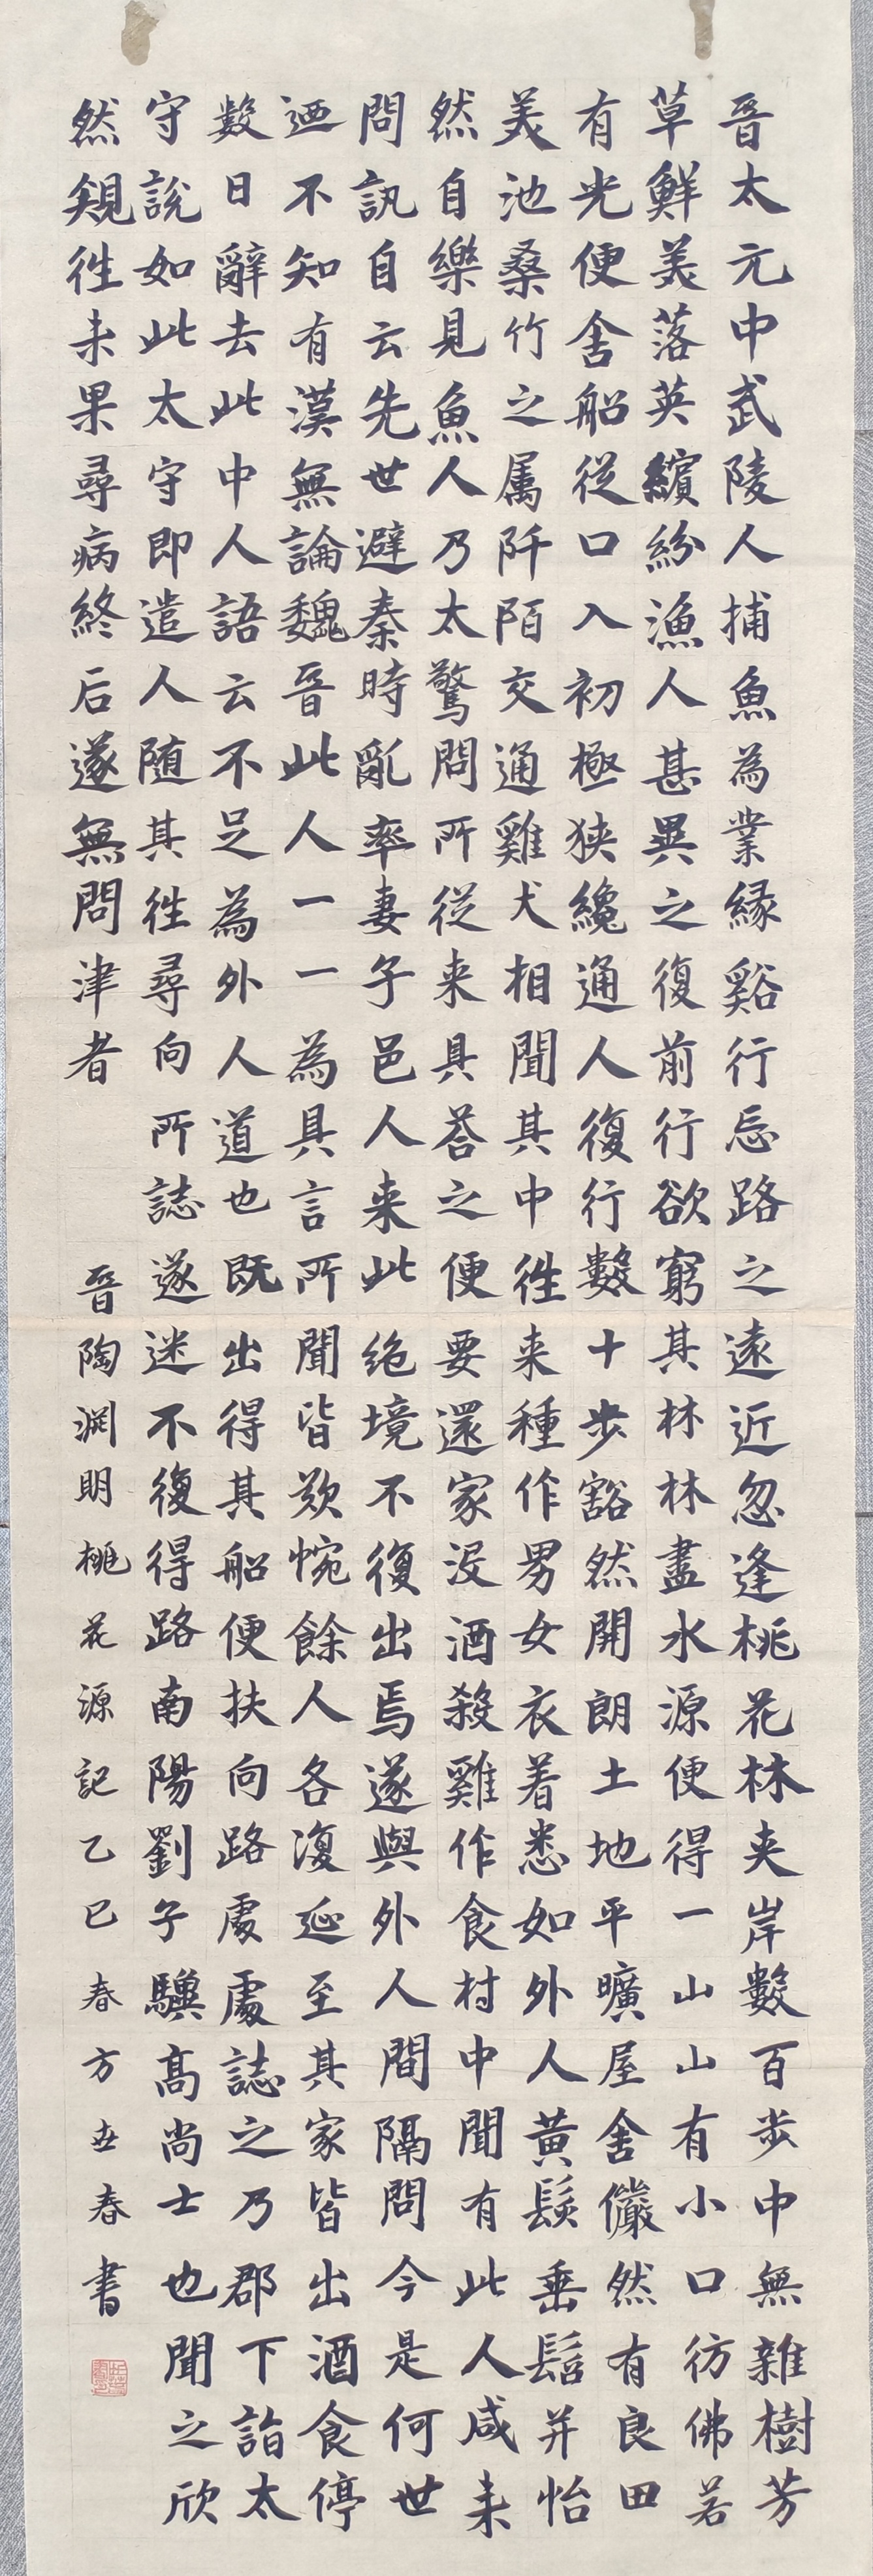 晉太元中武陵人捕魚為業緣谿行忘路之遠近忽逢桃花林夾岸數百步中無雜樹芳
草鮮美落英繽紛漁人甚異之復前行欲窮其林林盡水源便得一山山有小口彷佛若
有光便舍船從口入初極狹纔通人復行數十步豁然開朗土地平曠屋舍儼然有良田
美池桑竹之属阡陌交通雞犬相聞其中徃来種作男女衣着悉如外人黃髮垂髫并怡
然自樂見魚人乃太驚問所從来具荅之便要還家沒酒殺雞作食村中聞有此人咸来
問訊自云先世避秦時亂率妻子邑人来此絶境不復出焉遂與外人間隔問今是何世
迺不知有漢無論魏晉此人一一為具言所聞皆歎惋餘人各復延至其家皆出酒食停
數日辭去此中人語云不足為外人道也既出得其船便扶向路處處誌之乃郡下詣太
守說如此太守即遣人随其徃尋向所誌遂迷不復得路南陽劉子驥髙尚士也聞之欣
然規徃未果尋病終后遂無問津者
晉陶渊明桃花源記乙巳春方世春書